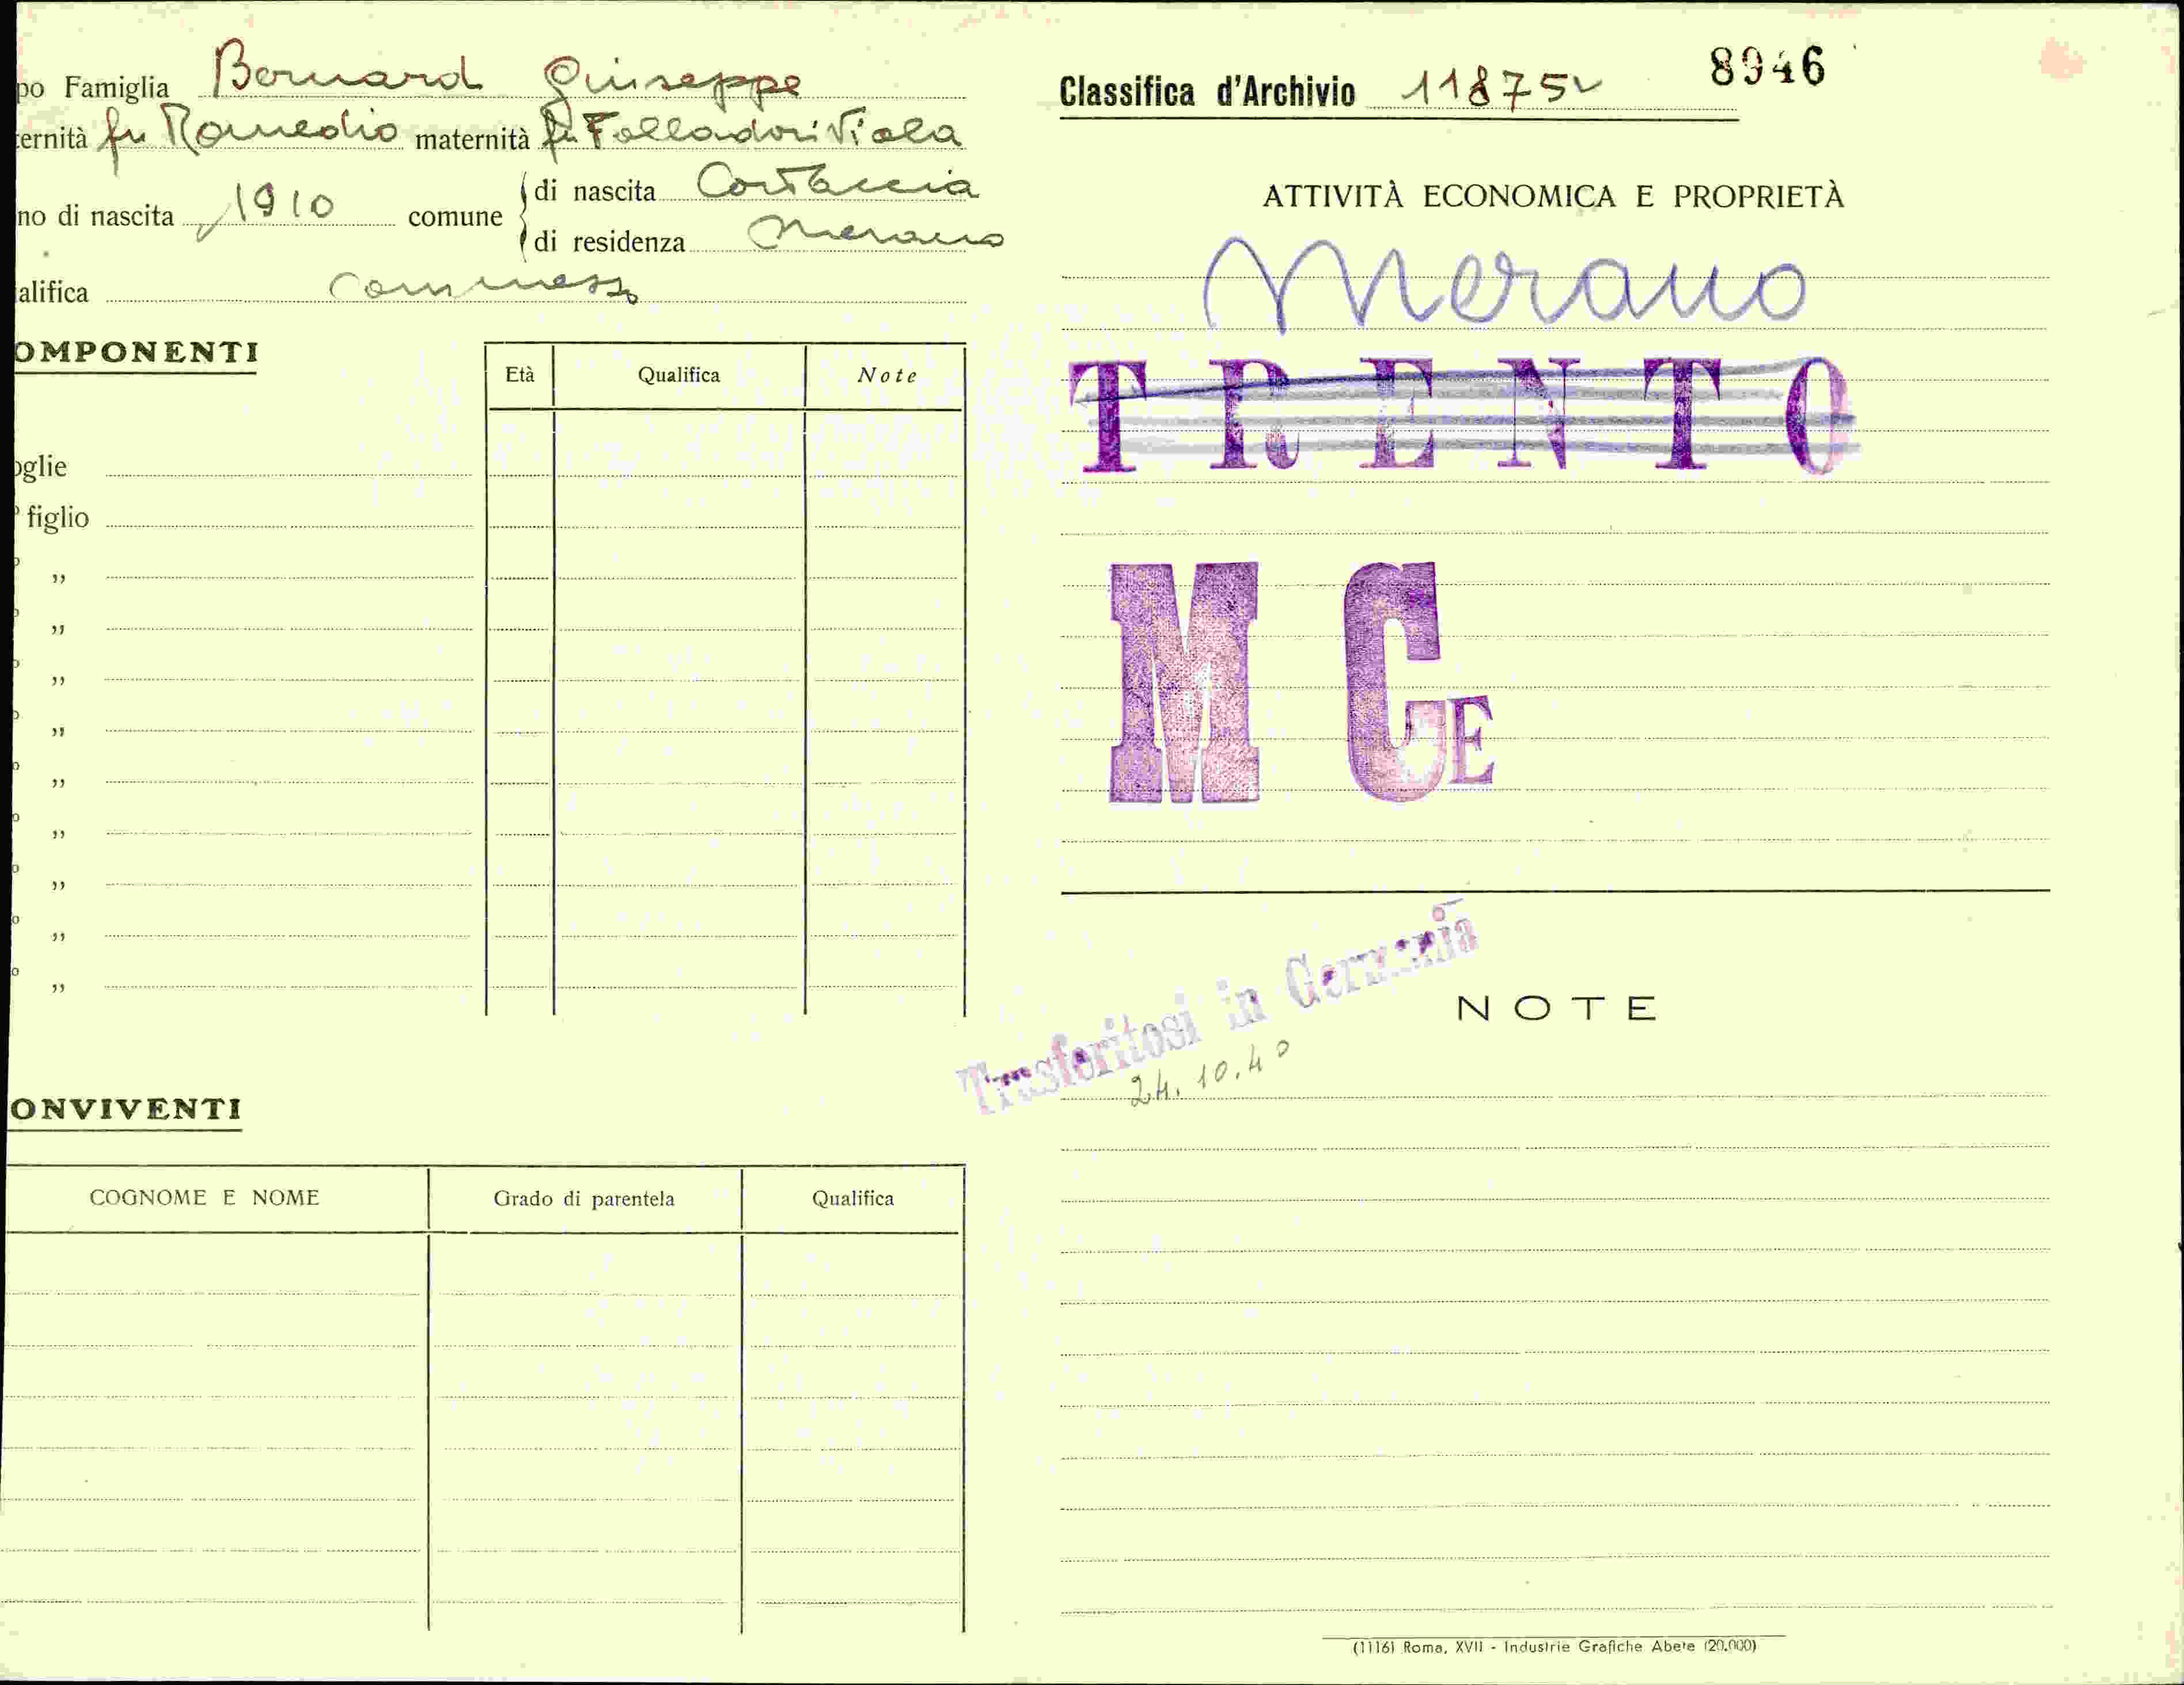 po Famiglia Bernard Giuseppe
ernità fu Romedio maternità fu Folladori Viola
no di nascita 1910 comune di nascita Cortaccia
di residenza Merano
alifica Commesso
OMPONENTI
Età Qualifica Note
oglie
figlio
„
„
„
„
„
„
„
„
„
ONVIVENTI
COGNOME E NOME Grado di parentela Qualifica
Classifica d'Archivio 11875 8946
ATTIVITÀ ECONOMICA E PROPRIETÀ
Merano
TRENTO
M C E
Trasferitosi in Germania
24.10.40
NOTE
(1116) Roma, XVII - Industrie Grafiche Abete (20.000)